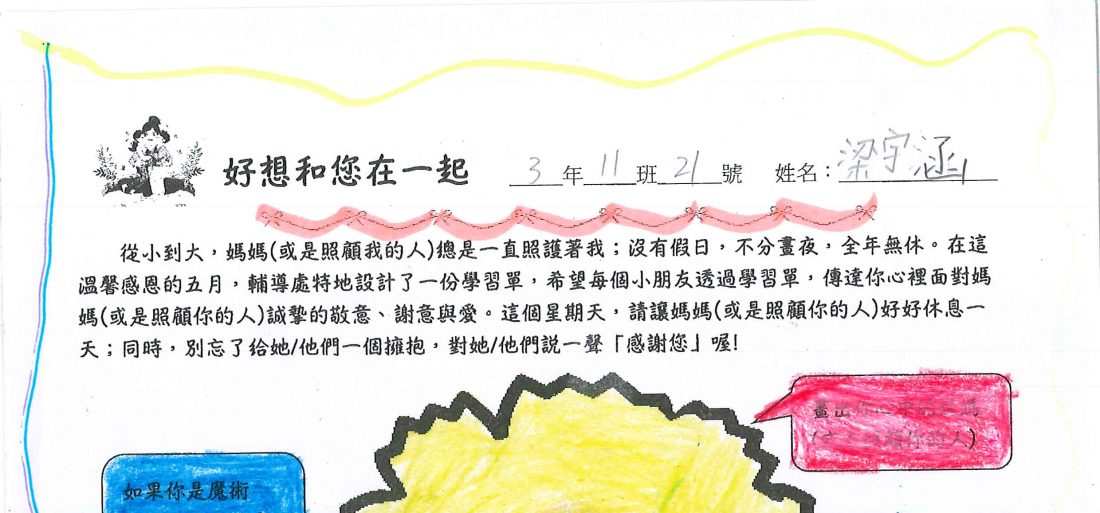 好想和您在一起 3年11班21號 姓名：梁宇涵
從小到大，媽媽(或是照顧我的人)總是一直照護著我；沒有假日，不分晝夜，全年無休。在這
溫馨感恩的五月，輔導處特地設計了一份學習單，希望每個小朋友透過學習單，傳達你心裡面對媽
媽(或是照顧你的人)誠摯的敬意、謝意與愛。這個星期天，請讓媽媽(或是照顧你的人)好好休息一
天；同時，別忘了給她/他們一個擁抱，對她/他們說一聲「感謝您」喔!
畫出
人)
如果你是魔術